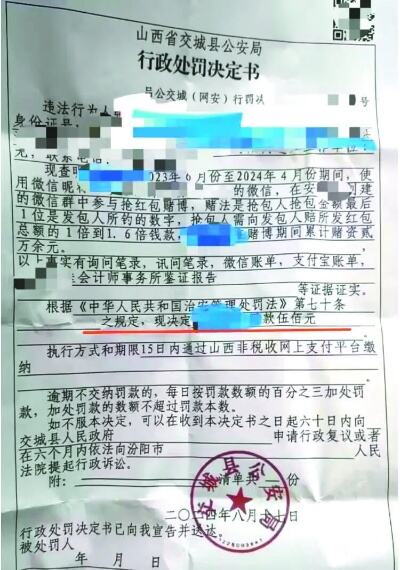 山西省交城县公安局
行政处罚决定书
公交城(网安)行罚决 号
违法行为人
身份证号
元，联系电话
现查明 2023年6月份至2024年4月份期间，使
用微信昵称 的微信，在安 河建
的微信群中参与抢红包赌博，赌法是抢包人抢包金额最后
1位是发包人所钓的数字，抢包人需向发包人赔所发红包
总额的1倍到1.6倍钱款， 赌博期间累计赌资贰
万余元。
以上事实有询问笔录，讯问笔录，微信账单，支付宝账单，
会计师事务所鉴证报告
等证据证实。
根据《中华人民共和国治安管理处罚法》第七十条
之规定，现决定 款伍佰元
执行方式和期限15日内通过山西非税收网上支付平台缴
纳
逾期不交纳罚款的，每日按罚款数额的百分之三加处罚
款，加处罚款的数额不超过罚款本数。
如不服本决定，可以在收到本决定书之日起六十日内向
交城县人民政府 申请行政复议或者
在六个月内依法向汾阳市 人民
法院提起行政诉讼。
附： 清单共 份
交城县公安局
二〇二四年八月 十七日
行政处罚决定书已向我宣告并送达
被处罚人
年 月 日